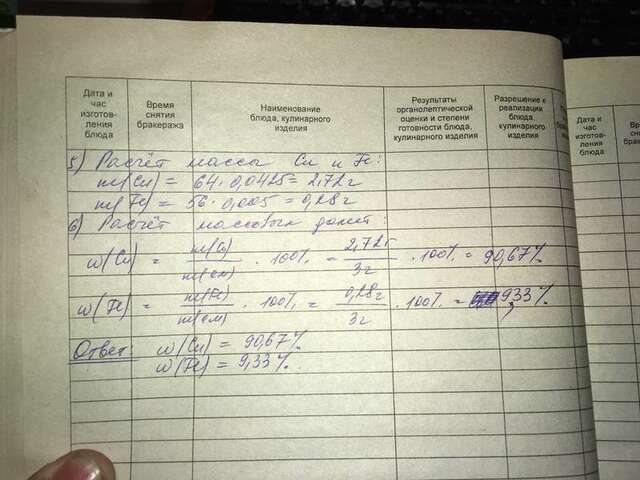 Дата и
час
изготов-
ления
блюда
Время
снятия
бракеража
Наименование
блюда, кулинарного
изделия
Результаты
органолептической
оценки и степени
готовности блюда,
кулинарного изделия
Разрешение к
реализации
блюда,
кулинарного
изделия
Дата и
час
изготов-
ления
блюда
5) Расчёт массы Cu и Fe:
m(Cu) = 64·0,0425 = 2,72г
m(Fe) = 56·0,005 = 0,28г
6) Расчёт массовых долей:
w(Cu) = m(Cu)/m(см) · 100% = 2,72г/3г · 100% = 90,67%
w(Fe) = m(Fe)/m(см) · 100% = 0,28г/3г · 100% = 9,33%
Ответ: w(Cu) = 90,67%
w(Fe) = 9,33%.